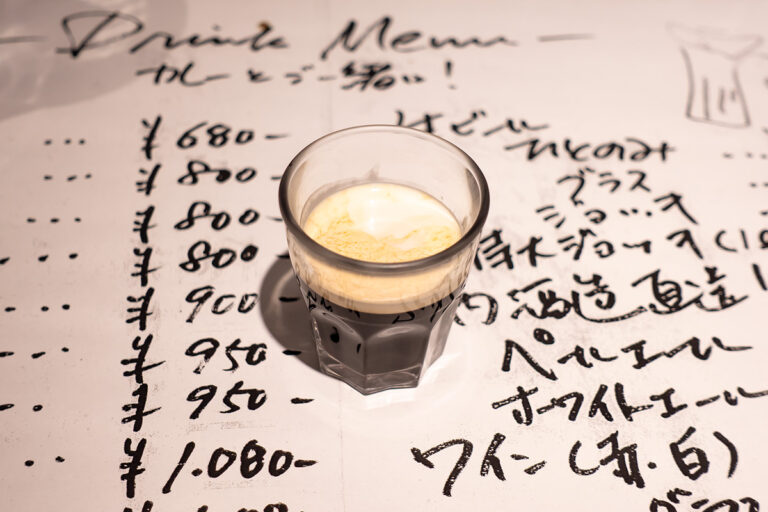 — Drink Menu —
カレーとご一緒に!
¥680-
¥800-
¥800-
¥800-
¥900-
¥950-
¥950-
¥1.080-
ビール
ひとのみ
グラス
ジョッキ
特大ジョッキ
酒造直送!
ペールエール
ホワイトエール
ワイン(赤.白)
グラス